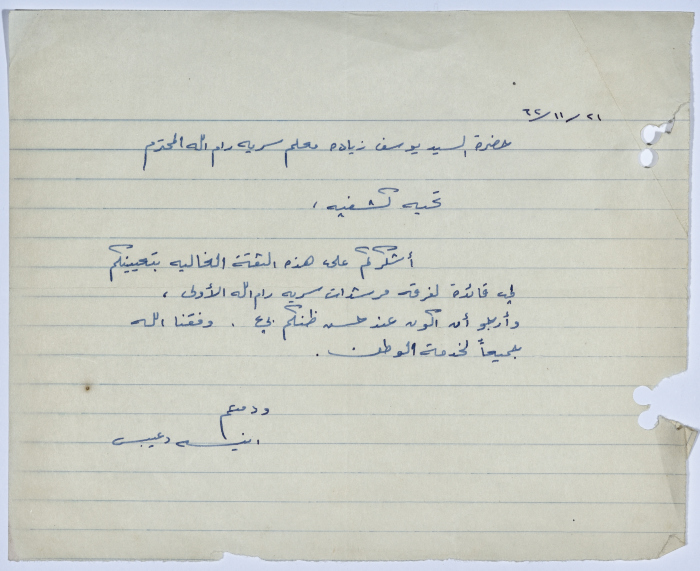 ٦٢/١١/٢١
حضرة السيد يوسف زياده معلم سرية رام الله المحترم
تحيه كشفيه ،
أشكركم على هذه الثقة الغاليه بتعيينكم
لي قائدة لفرقة مرشدات سريه رام الله الأولى ،
وأرجو أن اكون عند حسن ظنكم بي . وفقنا الله
جميعاً لخدمة الوطن .
ودمتم
انيسه دعيبس